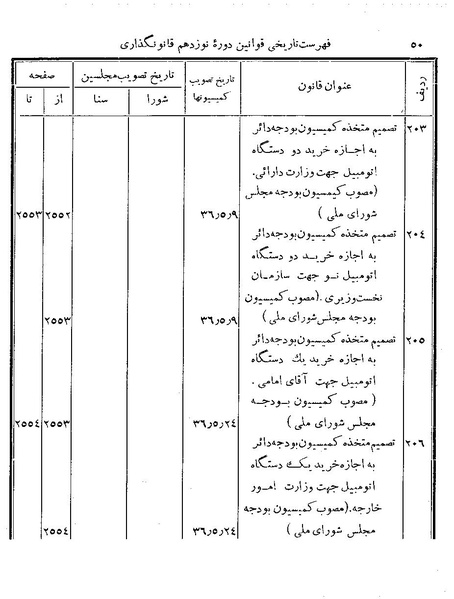 ۵۰ فهرست تاریخی قوانین دورهٔ نوزدهم قانونگذاری
ردیف عنوان قانون تاریخ تصویب کمیسیونها تاریخ تصویب مجلسین صفحه
شورا سنا از تا
۲۰۳ تصمیم متخذه کمیسیون بودجه دائر
به اجازه خرید دو دستگاه
اتومبیل جهت وزارت دارائی.
(مصوب کمیسیون بودجه مجلس
شورای ملی) ۳۶٫۵٫۹ ۲۵۵۲ ۲۵۵۳
۲۰۴ تصمیم متخذه کمیسیون بودجه دائر
به اجازه خرید دو دستگاه
اتومبیل نو جهت سازمان
نخست‌وزیری.(مصوب کمیسیون
بودجه مجلس شورای ملی) ۳۶٫۵٫۹ ۲۵۵۳
۲۰۵ تصمیم متخذه کمیسیون بودجه دائر
به اجازه خرید یك دستگاه
اتومبیل جهت آقای امامی.
(مصوب کمیسیون بودجه
مجلس شورای ملی) ۳۶٫۵٫۲۴ ۲۵۵۳ ۲۵۵۴
۲۰۶ تصمیم متخذه کمیسیون بودجه دائر
به اجازه خرید یک دستگاه
اتومبیل جهت وزارت امور
خارجه.(مصوب کمیسیون بودجه
مجلس شورای ملی) ۳۶٫۵٫۲۴ ۲۵۵۴